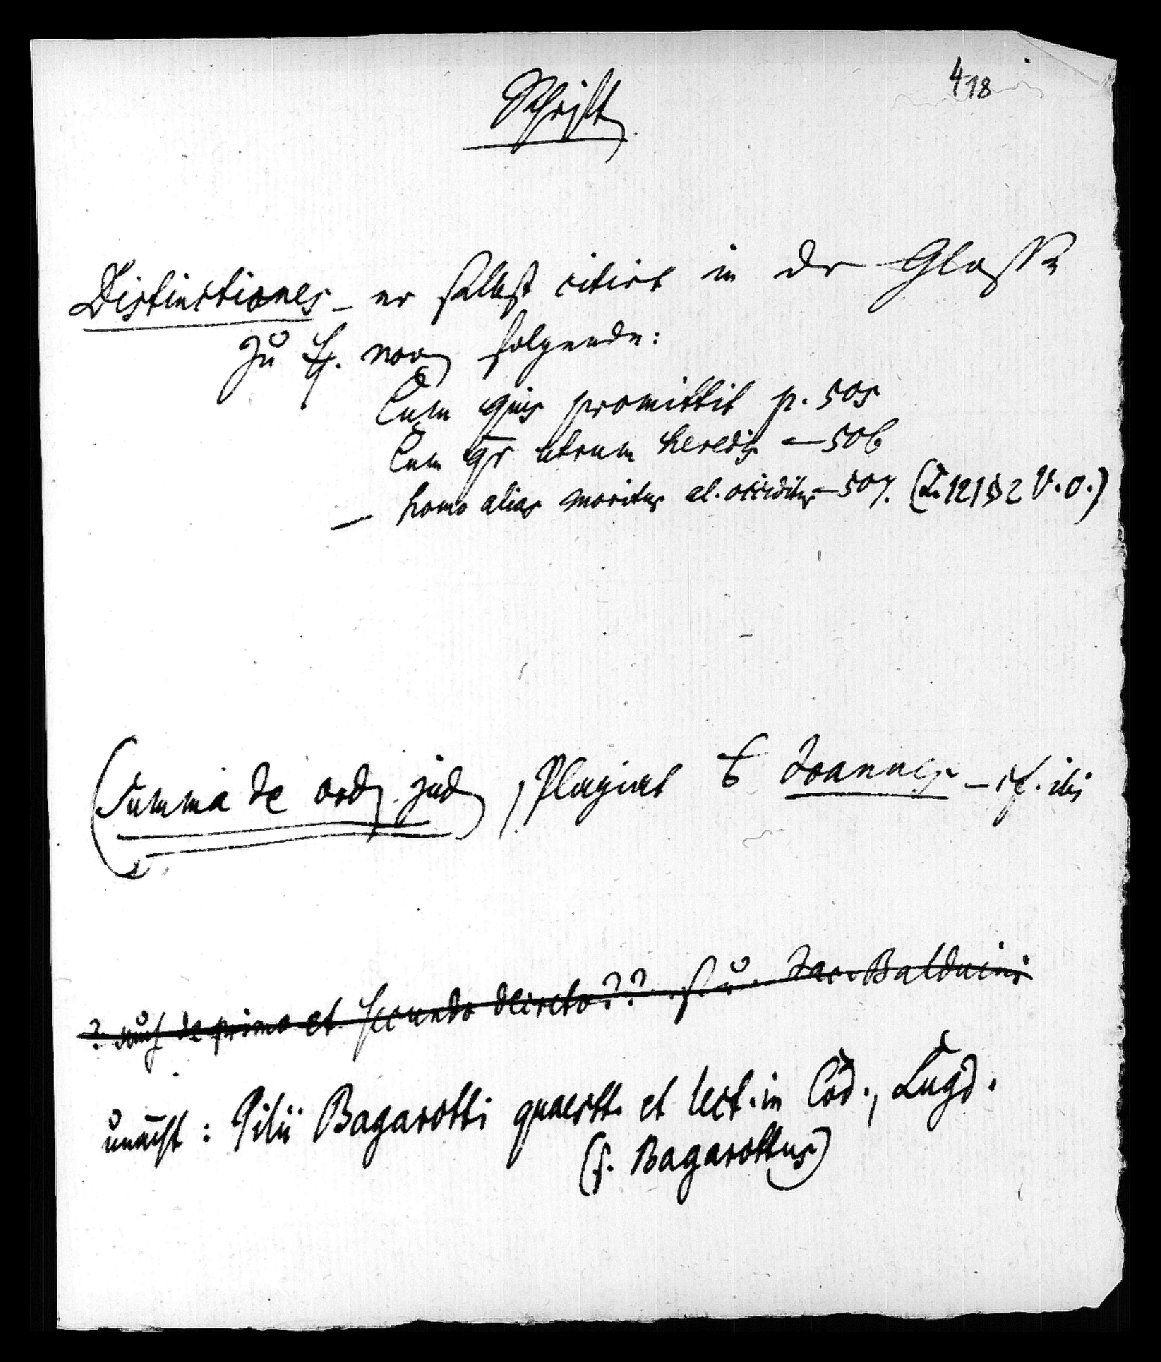 418
Schrift
Distinctiones – er selbst citirt in der Glosse
zu ff. nov. folgende:
Cum quis promittit p. 505
Cum qr utrum heredis – 506
– homo alias moritur al. occiditur – 507. (L. 121 § 2 V. O.)
(Summa de ord. jud., Plagiat Joannes – cf. ibi
? auch de primo et secundo decreto?? s. Jac. Balduini
unächt: Pilii Bagarotti quaestt. et lect. in Cod., Lugd.
(s. Bagarottus)